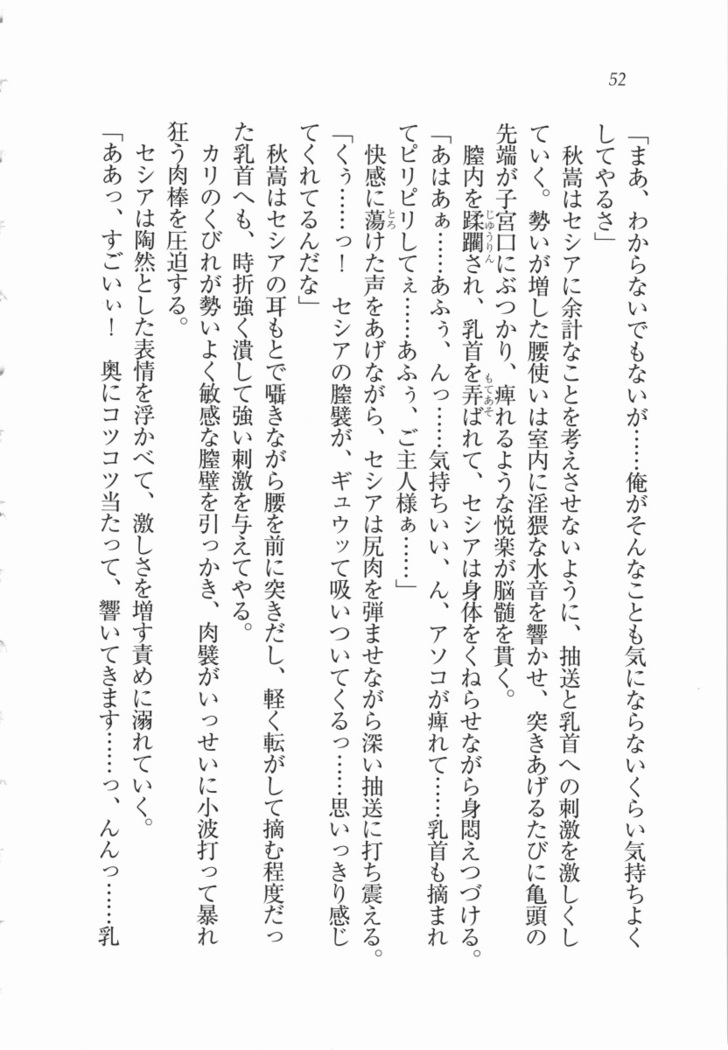 52
「まあ、わからないでもないが……俺がそんなことも気にならないくらい気持ちよく
してやるさ」
秋嵩はセシアに余計なことを考えさせないように、抽送と乳首への刺激を激しくし
ていく。勢いが増した腰使いは室内に淫猥な水音を響かせ、突きあげるたびに亀頭の
先端が子宮口にぶつかり、痺れるような悦楽が脳髄を貫く。
膣内を蹂躙され、乳首を弄ばれて、セシアは身体をくねらせながら身悶えつづける。
「あはあぁ……あふぅ、んっ……気持ちいい、ん、アソコが痺れて……乳首も摘まれ
てピリピリしてぇ……あふぅ、ご主人様ぁ……」
快感に蕩けた声をあげながら、セシアは尻肉を弾ませながら深い抽送に打ち震える。
「くぅ……っ！　セシアの膣襞が、ギュウッて吸いついてくるっ……思いっきり感じ
てくれてるんだな」
秋嵩はセシアの耳もとで囁きながら腰を前に突きだし、軽く転がして摘む程度だっ
た乳首へも、時折強く潰して強い刺激を与えてやる。
カリのくびれが勢いよく敏感な膣壁を引っかき、肉襞がいっせいに小波打って暴れ
狂う肉棒を圧迫する。
セシアは陶然とした表情を浮かべて、激しさを増す責めに溺れていく。
「ああっ、すごいぃ！　奥にコツコツ当たって、響いてきます……っ、んんっ……乳